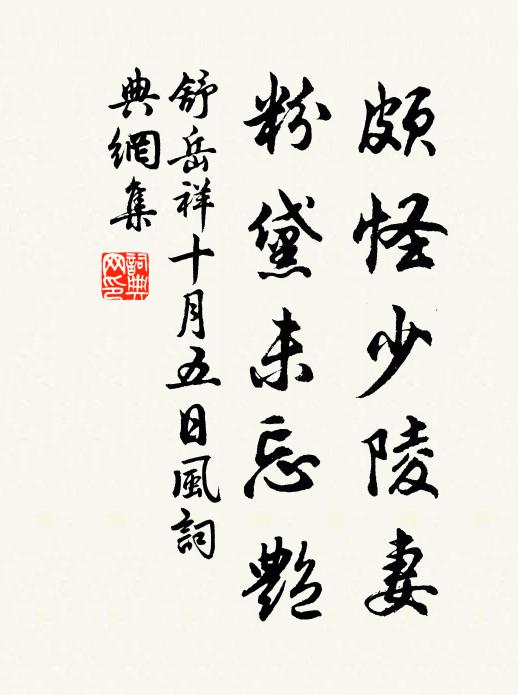 頗怪少陵妻
粉黛未忘艷
舒岳祥十月五日風詞
典網集
詞典
网印